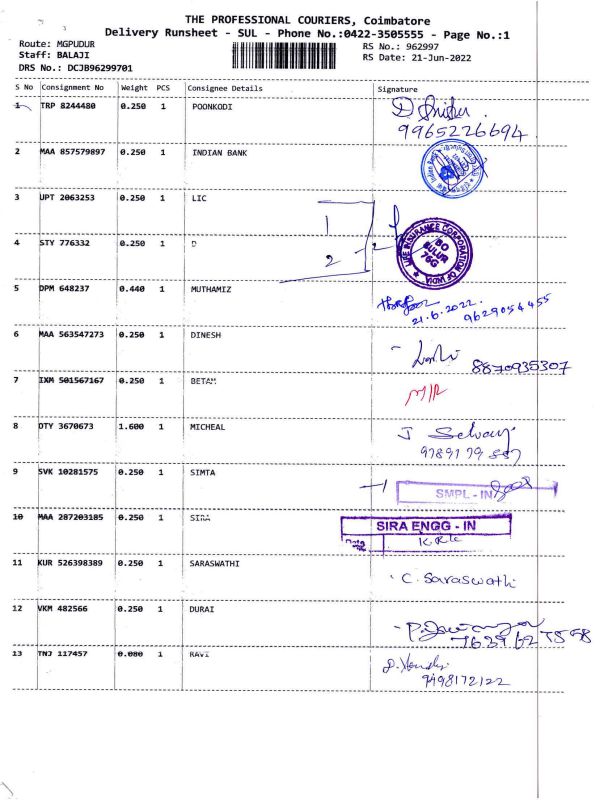 THE PROFESSIONAL COURIERS, Coimbatore
Delivery Runsheet - SUL - Phone No.:0422-3505555 - Page No.:1
Route: MGPUDUR
RS No.: 962997
Staff: BALAJI
RS Date: 21-Jun-2022
DRS No.: DCJB96299701
S No Consignment No Weight PCS Consignee Details Signature
1 TRP 8244480 0.250 1 POONKODI
9965226694
2 MAA 857579897 0.250 1 INDIAN BANK
Indian Bank
3 UPT 2063253 0.250 1 LIC
1
2
LIFE INSURANCE CORPORATION OF INDIA
BO
SULUR
76G
4 STY 776332 0.250 1 D
5 DPM 648237 0.440 1 MUTHAMIZ
21.6.2022.
9629054455
6 MAA 563547273 0.250 1 DINESH
8870935307
7 IXM 501567167 0.250 1 BETAM
8 OTY 3670673 1.600 1 MICHEAL
J Selvaraj
9 SVK 10281575 0.250 1 SIMTA
SMPL - IN
10 MAA 287203185 0.250 1 SIRA
SIRA ENGG - IN
11 KUR 526398389 0.250 1 SARASWATHI
C. Saraswathi
12 VKM 482566 0.250 1 DURAI
13 TNJ 117457 0.080 1 RAVI
9498172122